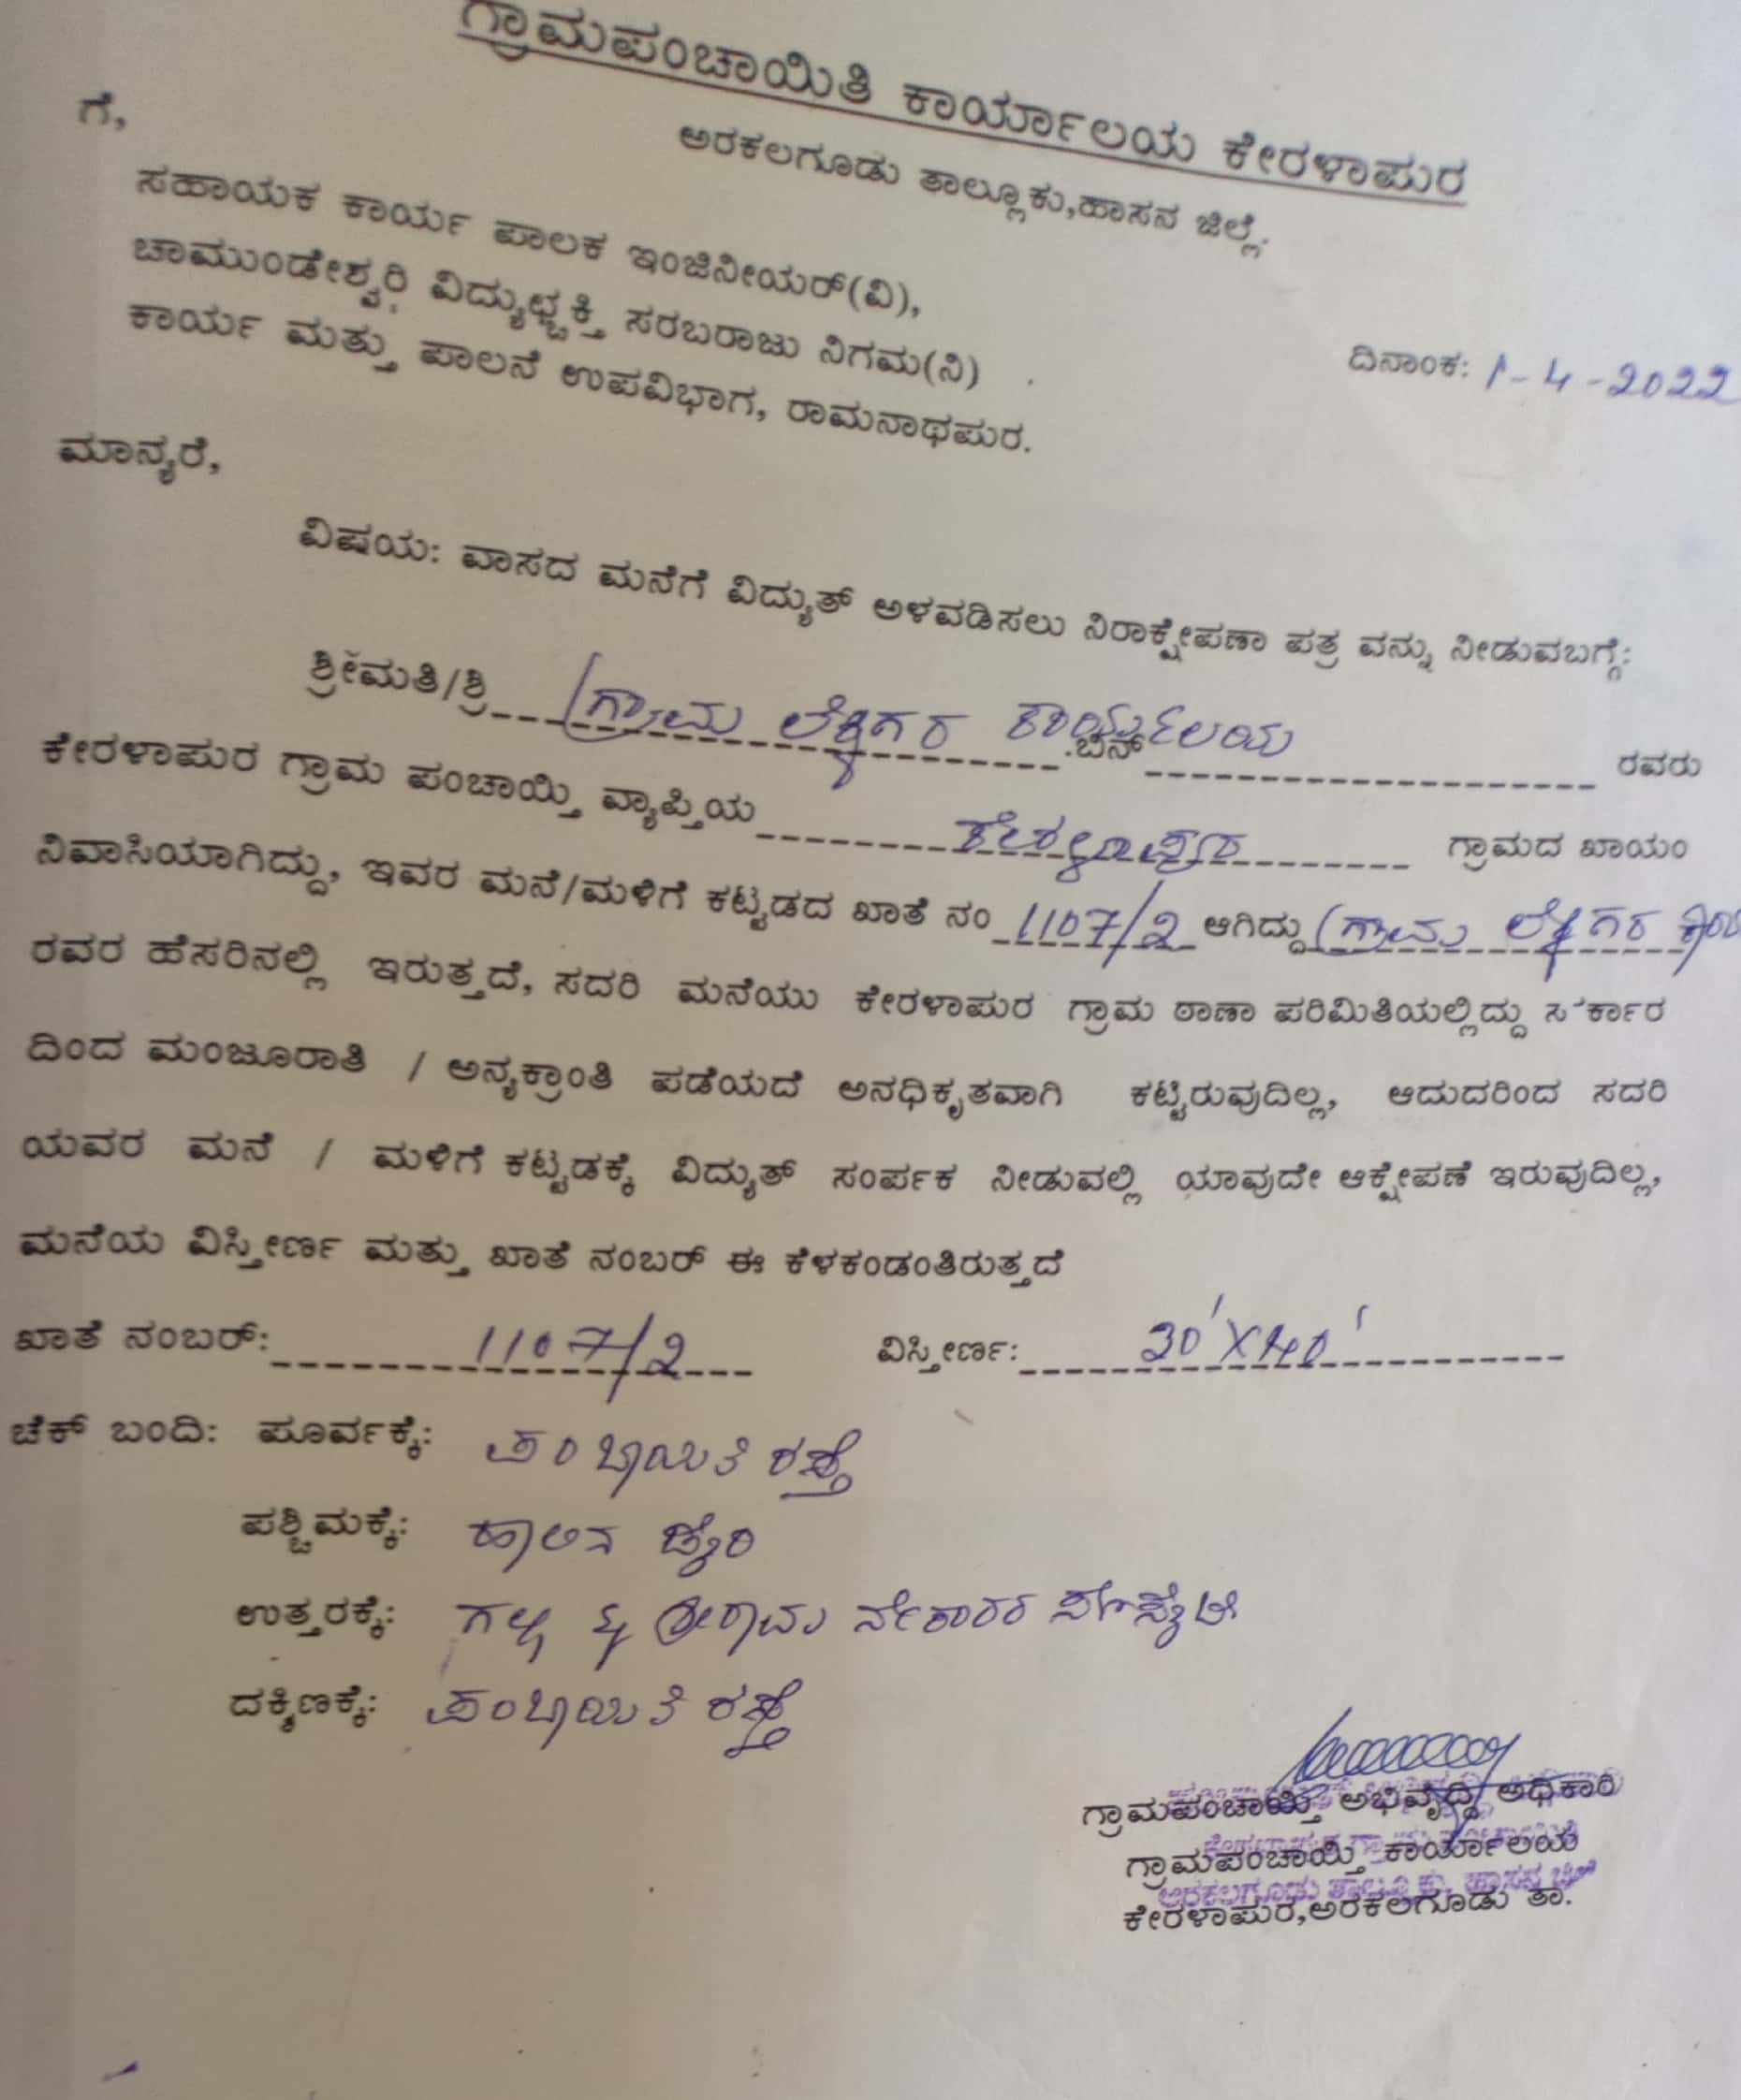 ಗ್ರಾಮಪಂಚಾಯಿತಿ ಕಾರ್ಯಾಲಯ ಕೇರಳಾಪುರ
ಅರಕಲಗೂಡು ತಾಲ್ಲೂಕು,ಹಾಸನ ಜಿಲ್ಲೆ.
ಗೆ,
ಸಹಾಯಕ ಕಾರ್ಯ ಪಾಲಕ ಇಂಜಿನೀಯರ್(ವಿ),
ಚಾಮುಂಡೇಶ್ವರಿ ವಿದ್ಯುಚ್ಛಕ್ತಿ ಸರಬರಾಜು ನಿಗಮ(ನಿ)
ದಿನಾಂಕ: 1-4-2022
ಕಾರ್ಯ ಮತ್ತು ಪಾಲನೆ ಉಪವಿಭಾಗ, ರಾಮನಾಥಪುರ.
ಮಾನ್ಯರೆ,
ವಿಷಯ: ವಾಸದ ಮನೆಗೆ ವಿದ್ಯುತ್ ಅಳವಡಿಸಲು ನಿರಾಕ್ಷೇಪಣಾ ಪತ್ರ ವನ್ನು ನೀಡುವಬಗ್ಗೆ:
ಶ್ರೀಮತಿ/ಶ್ರಿ ಗ್ರಾಮ ಲೆಕ್ಕಿಗರ ಕಾರ್ಯಾಲಯ ಬಿನ್ ರವರು
ಕೇರಳಾಪುರ ಗ್ರಾಮ ಪಂಚಾಯ್ತಿ ವ್ಯಾಪ್ತಿಯ ಕೇರಳಾಪುರ ಗ್ರಾಮದ ಖಾಯಂ
ನಿವಾಸಿಯಾಗಿದ್ದು, ಇವರ ಮನೆ/ಮಳಿಗೆ ಕಟ್ಟಡದ ಖಾತೆ ನಂ 1107/2 ಆಗಿದ್ದು ಗ್ರಾಮ ಲೆಕ್ಕಿಗರ
ರವರ ಹೆಸರಿನಲ್ಲಿ ಇರುತ್ತದೆ, ಸದರಿ ಮನೆಯು ಕೇರಳಾಪುರ ಗ್ರಾಮ ಠಾಣಾ ಪರಿಮಿತಿಯಲ್ಲಿದ್ದು ಸರ್ಕಾರ
ದಿಂದ ಮಂಜೂರಾತಿ / ಅನ್ಯಕ್ರಾಂತಿ ಪಡೆಯದೆ ಅನಧಿಕೃತವಾಗಿ ಕಟ್ಟಿರುವುದಿಲ್ಲ, ಆದುದರಿಂದ ಸದರಿ
ಯವರ ಮನೆ / ಮಳಿಗೆ ಕಟ್ಟಡಕ್ಕೆ ವಿದ್ಯುತ್ ಸಂರ್ಪಕ ನೀಡುವಲ್ಲಿ ಯಾವುದೇ ಆಕ್ಷೇಪಣೆ ಇರುವುದಿಲ್ಲ,
ಮನೆಯ ವಿಸ್ತೀರ್ಣ ಮತ್ತು ಖಾತೆ ನಂಬರ್ ಈ ಕೆಳಕಂಡಂತಿರುತ್ತದೆ
ಖಾತೆ ನಂಬರ್: 1107/2 ವಿಸ್ತೀರ್ಣ: 30'X40'
ಚೆಕ್ ಬಂದಿ: ಪೂರ್ವಕ್ಕೆ: ಪಂಚಾಯಿತಿ ರಸ್ತೆ
ಪಶ್ಚಿಮಕ್ಕೆ: ಹಾಲಿನ ಡೈರಿ
ಉತ್ತರಕ್ಕೆ: ಗಲ್ಲಿ & ಶ್ರೀರಾಮ ನೇಕಾರರ ಸೊಸೈಟಿ
ದಕ್ಷಿಣಕ್ಕೆ: ಪಂಚಾಯಿತಿ ರಸ್ತೆ
ಗ್ರಾಮಪಂಚಾಯ್ತಿ ಅಭಿವೃದ್ಧಿ ಅಧಿಕಾರಿ
ಗ್ರಾಮಪಂಚಾಯ್ತಿ ಕಾರ್ಯಾಲಯ
ಅರಕಲಗೂಡು ತಾಲ್ಲೂಕು, ಹಾಸನ ಜಿಲ್ಲೆ
ಕೇರಳಾಪುರ,ಅರಕಲಗೂಡು ತಾ.